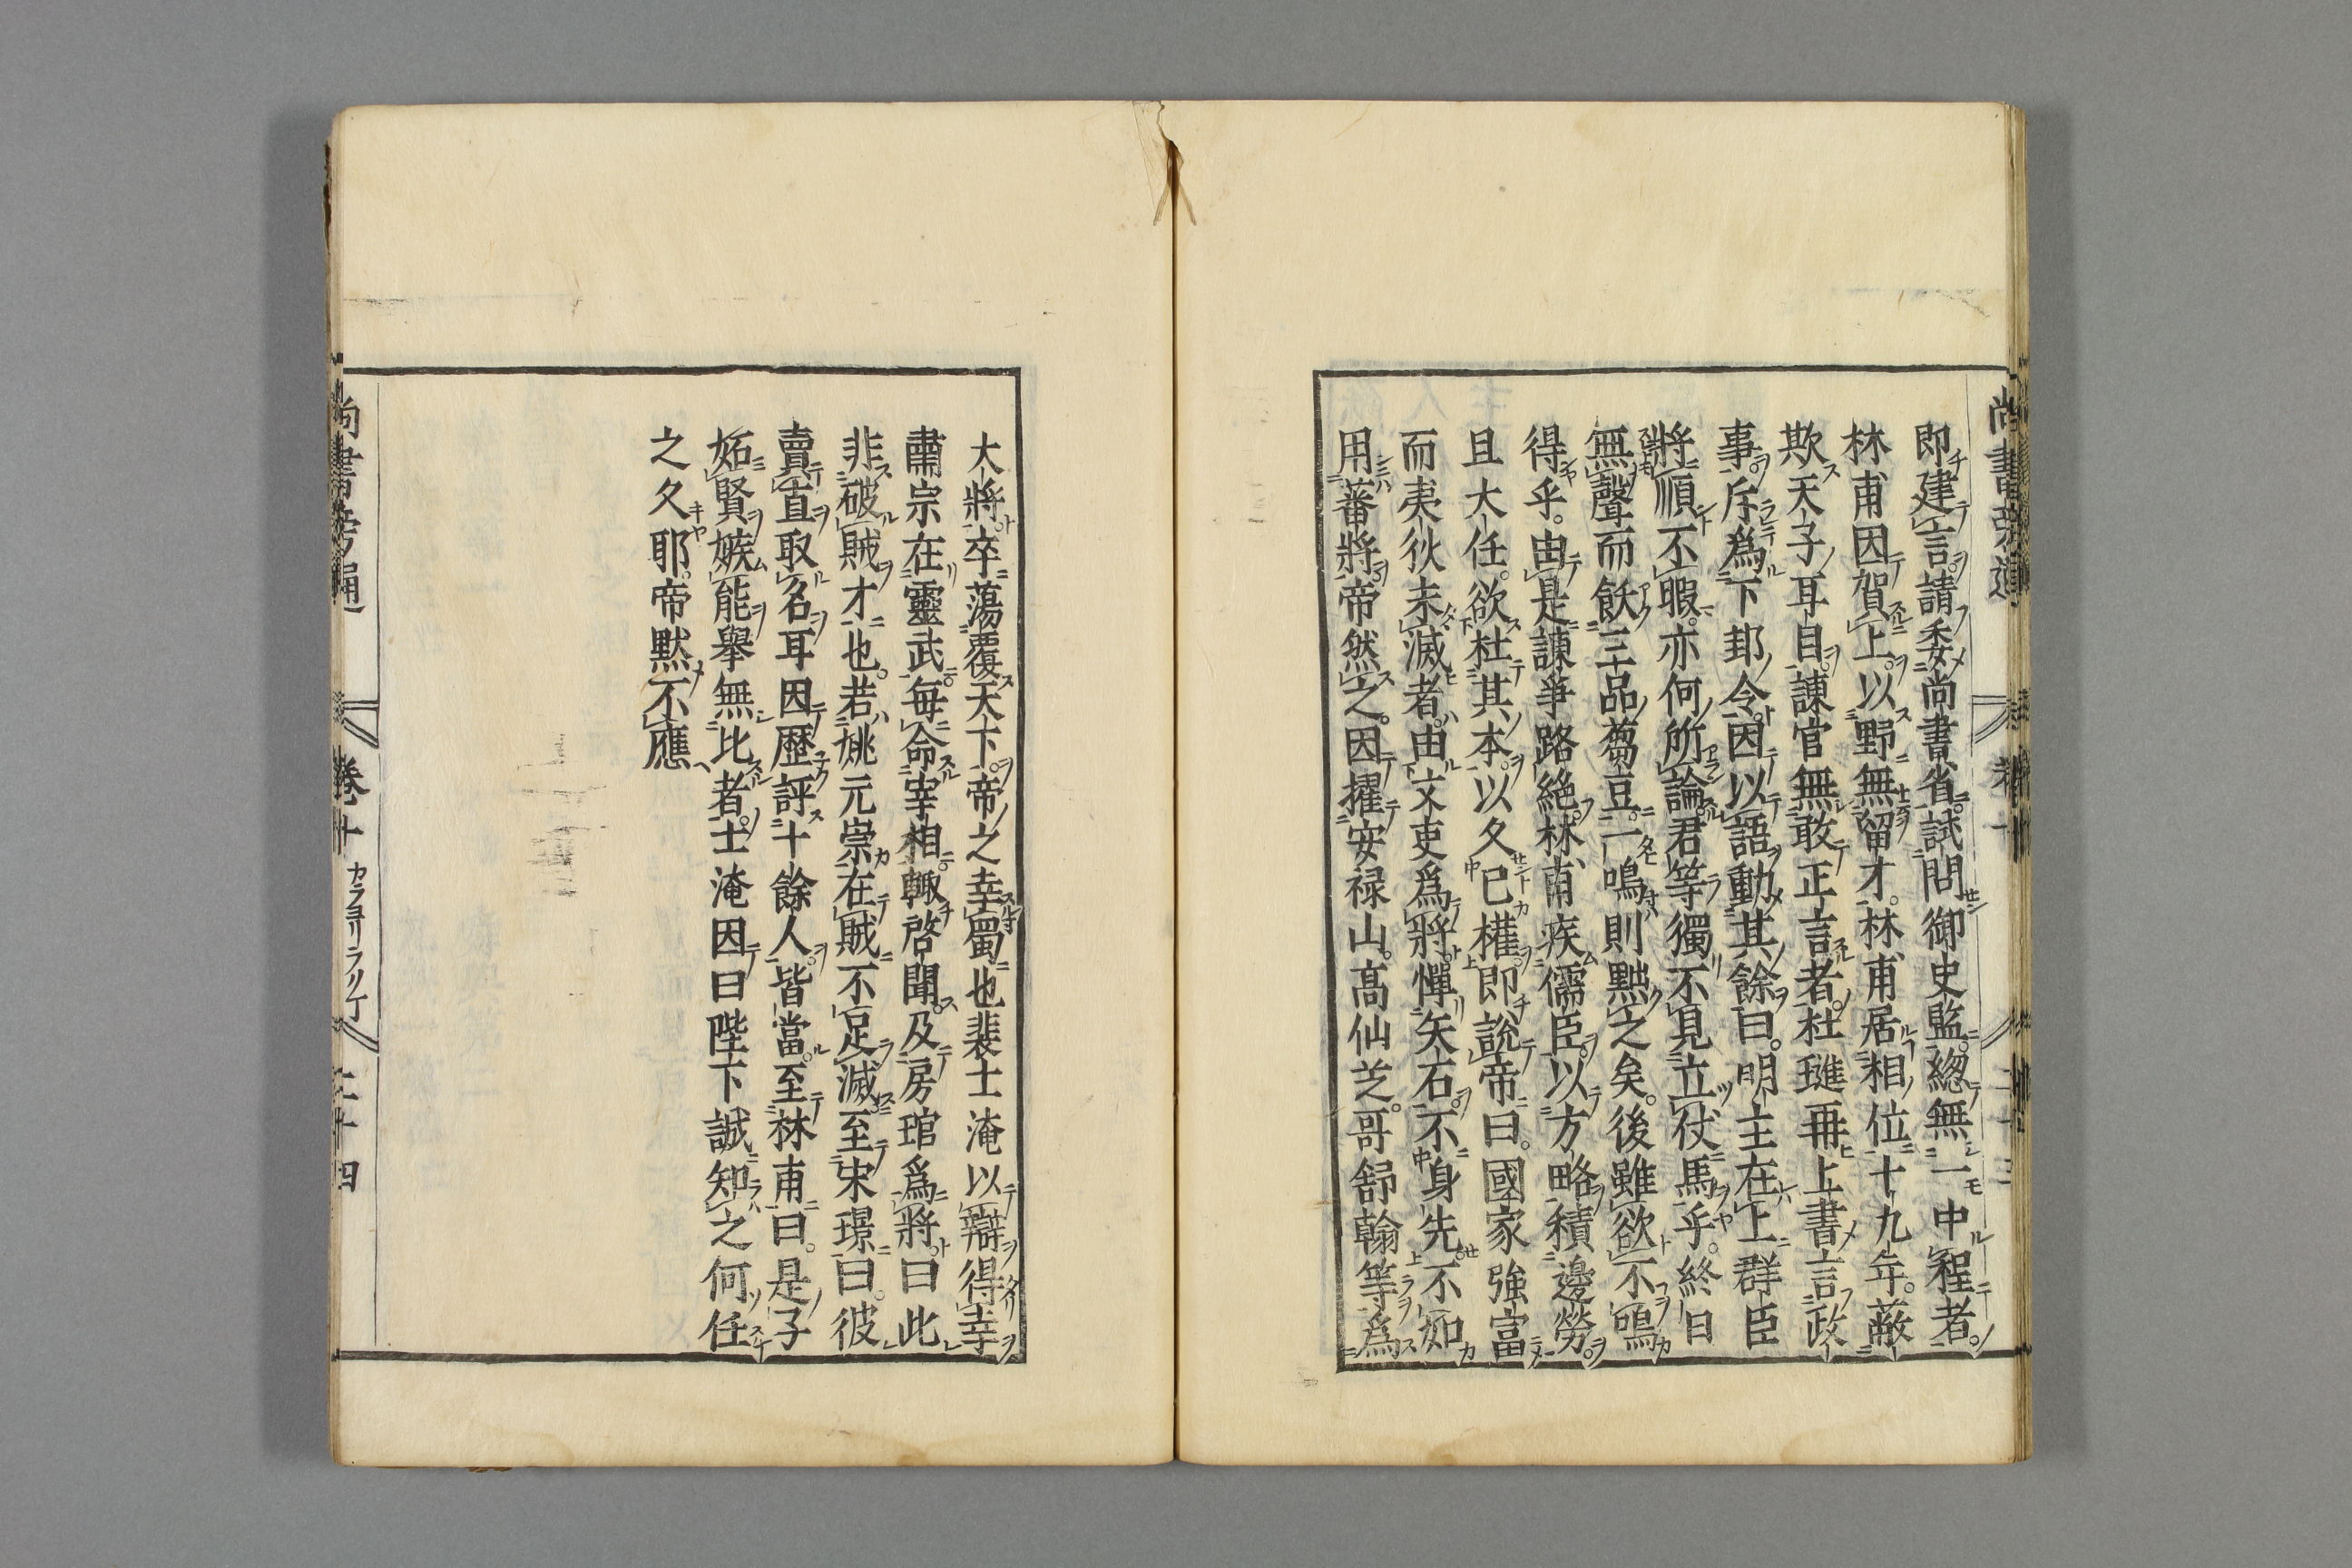 即建言請委尚書省試問御史監總無一中程者
林甫因賀上以野無留才林甫居相位十九年蔽
欺天子耳目諫官無敢正言者杜璡再上書言政
事斥爲下邽令因以語動其餘曰明主在上群臣
將順不暇亦何所論君等獨不見立仗馬乎終日
無聲而飫三品蒭豆一鳴則黜之矣後雖欲不鳴
得乎由是諫爭路絕林甫疾儒臣以方略積邊勞
且大任欲杜其本以久已權即說帝曰國家強富
而夷狄未滅者由文吏爲將憚矢石不身先不如
用蕃將帝然之因擢安禄山高仙芝哥舒翰等爲
大將卒蕩覆天下帝之幸蜀也裴士淹以辯得幸
肅宗在靈武每命宰相輙啓聞及房琯爲將曰此
非破賊才也若姚元崇在賊不足滅至宋璟曰彼
賣直取名耳因歴評十餘人皆當至林甫曰是子
妬賢嫉能舉無比者士淹因曰陛下誠知之何任
之久耶帝黙不應
尚書旁通 卷十 二十四